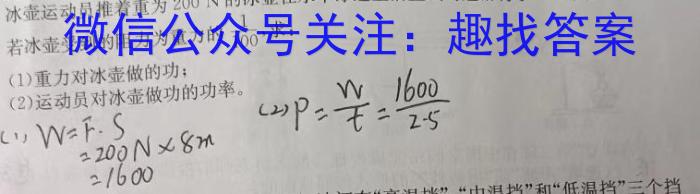 冰壶运动员推着重为200 N的冰壶在水平
微信公众号关注：趣找答案
若冰壶受到的阻力为重力的
(1)重力对冰壶做的功；
(2)运动员对冰壶做功的功率。
(1) W=F·S
=200N×8m
=1600
(2) P=W/t=1600/2.5
"高温挡""中温挡"和"低温挡"三个挡